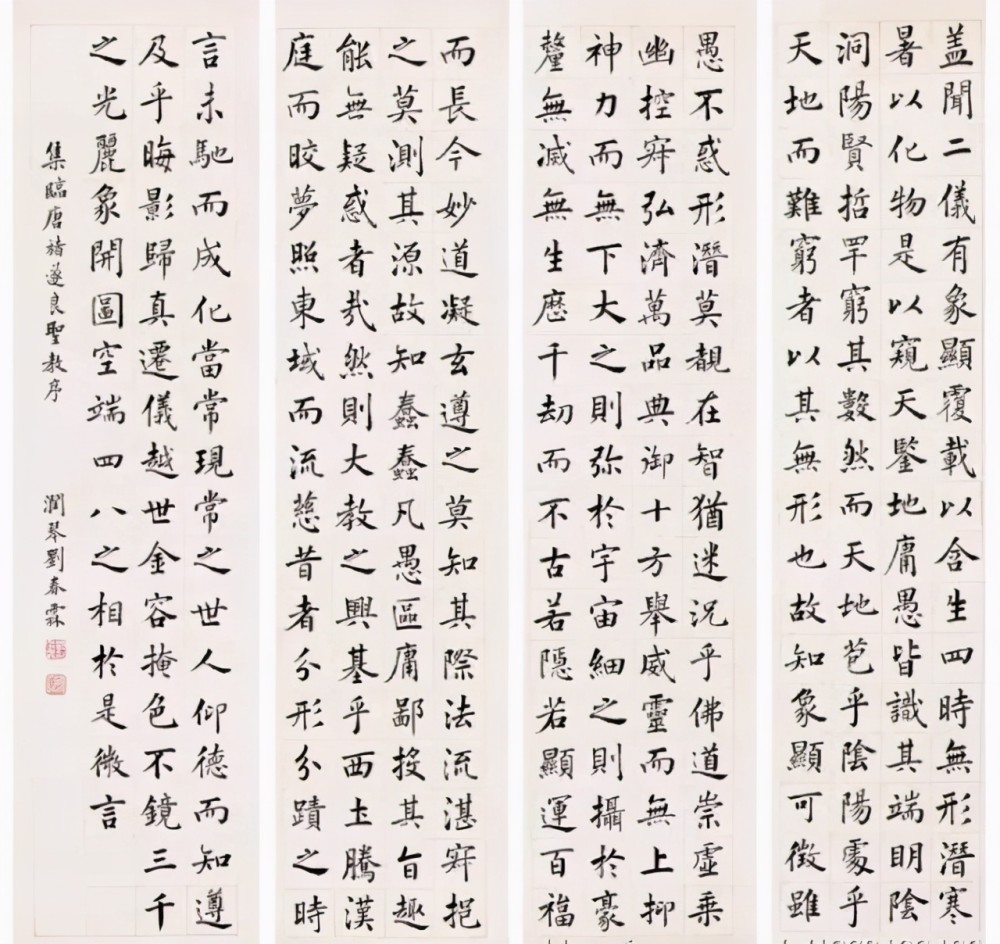 盖聞二儀有象顯覆載以含生四時無形潛寒
暑以化物是以窺天鑒地庸愚皆識其端明陰
洞陽賢哲罕窮其數然而天地苞乎陰陽處乎
天地而難窮者以其無形也故知象顯可徵雖
愚不惑形潛莫覩在智猶迷況乎佛道崇虛乘
幽控寂弘濟萬品典御十方舉威靈而無上抑
神力而無下大之則弥於宇宙細之則攝於豪
釐無滅無生歷千劫而不古若隱若顯運百福
而長今妙道凝玄遵之莫知其際法流湛寂挹
之莫測其源故知蠢蠢凡愚區庸鄙投其旨趣
能無疑惑者哉然則大教之興基乎西土騰漢
庭而皎夢照東域而流慈昔者分形分蹟之時
言未馳而成化當常現常之世人仰德而知遵
及乎晦影歸真遷儀越世金容掩色不鏡三千
之光麗象開圖空端四八之相於是微言
集臨唐褚遂良聖教序 潤琴劉春霖